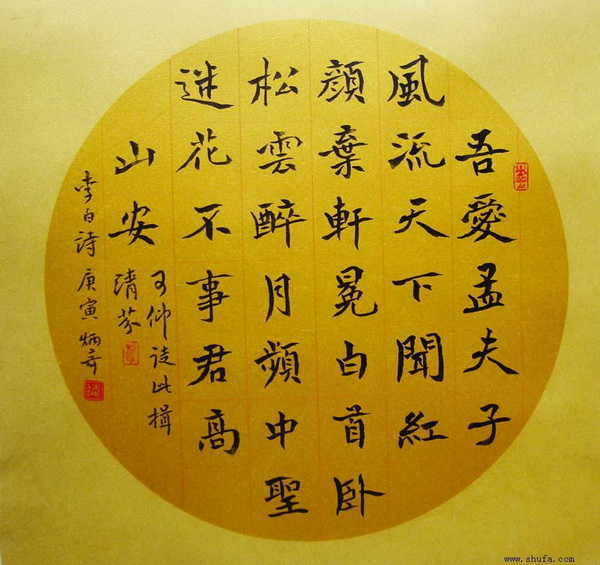 吾愛孟夫子
風流天下聞紅
顏棄軒冕白首卧
松雲醉月頻中聖
迷花不事君高
山安
可仰徒此揖
清芬
李白詩庚寅炳
www.shufa.com